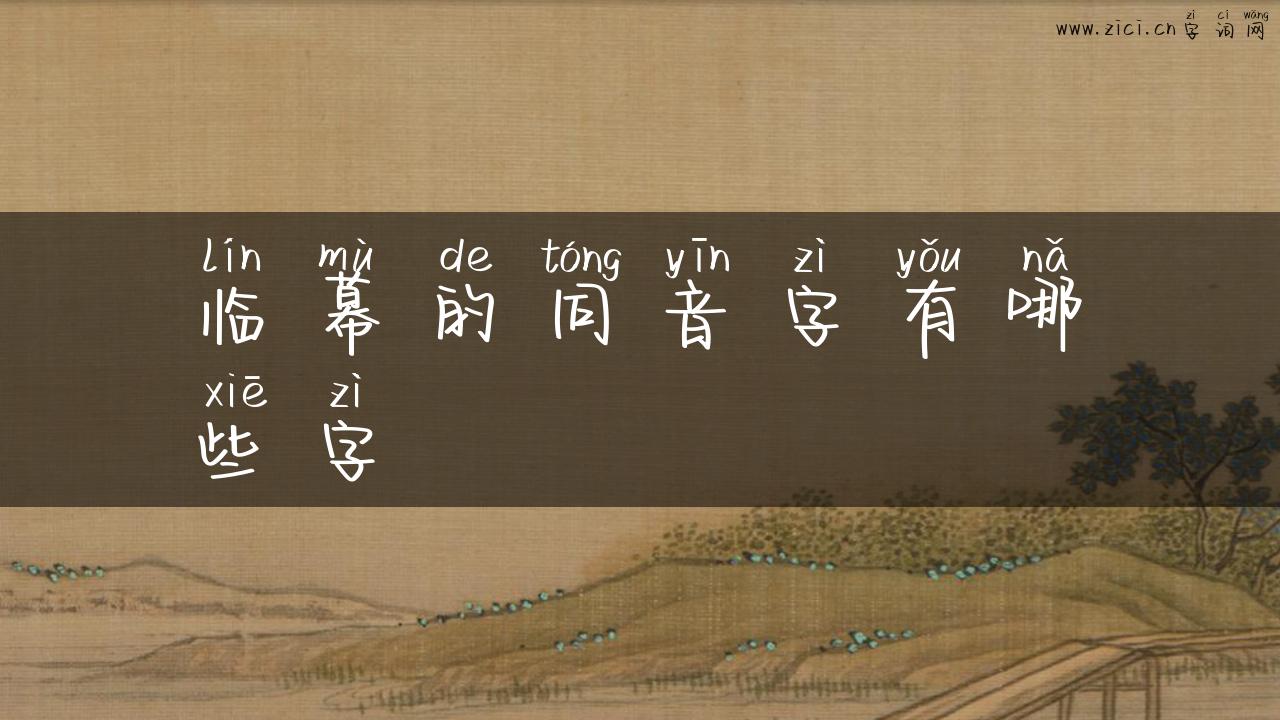 zì cí wǎng
www.zici.cn 字词网
lín mù de tóng yīn zì yǒu nǎ
临幕的同音字有哪
xiē zì
些字